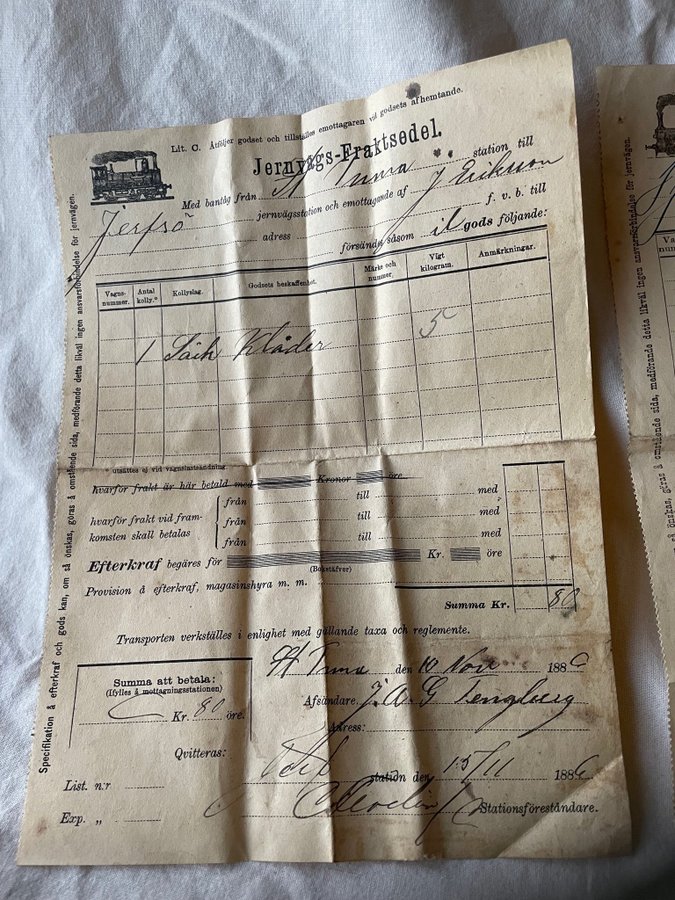 Lit. C. Åtföljer godset och tillställes emottagaren vid godsets afhemtande.
Jernvägs-Fraktsedel.
Med bantåg från St Tuna station till
Jerfsö jernvägsstation och emottagande af J Erikson
adress f. v. b. till
försändt såsom il gods följande:
Vagns-nummer. Antal kolly.* Kollyslag. Godsets beskaffenhet. Märke och nummer. Vigt kilogram. Anmärkningar.
1 Säck Kläder 5
utsättes ej vid vagnslastsändning
hvarför frakt är här betald med Kronor öre
från till med
hvarför frakt vid fram-
från till med
komsten skall betalas
från till med
Efterkraf begäres för Kr. öre
(Bokstäfver)
Provision å efterkraf, magasinshyra m. m.
Summa Kr. 80
Transporten verkställes i enlighet med gällande taxa och reglemente.
St Tuna den 10 Nov 1886
Summa att betala:
(Ifylles å mottagningsstationen)
Afsändare J. A. G
Kr. 80 öre.
Adress:
Qvitteras:
station den 15/11 1886
List. n:r
Stationsföreståndare.
Exp. „
Specifikation å efterkraf och gods kan, om så önskas, göras å omstående sida, medförande detta likväl ingen ansvarsförbindelse för jernvägen.
göras å omstående sida, medförande detta likväl ingen ansvarsförbindelse för jernvägen.